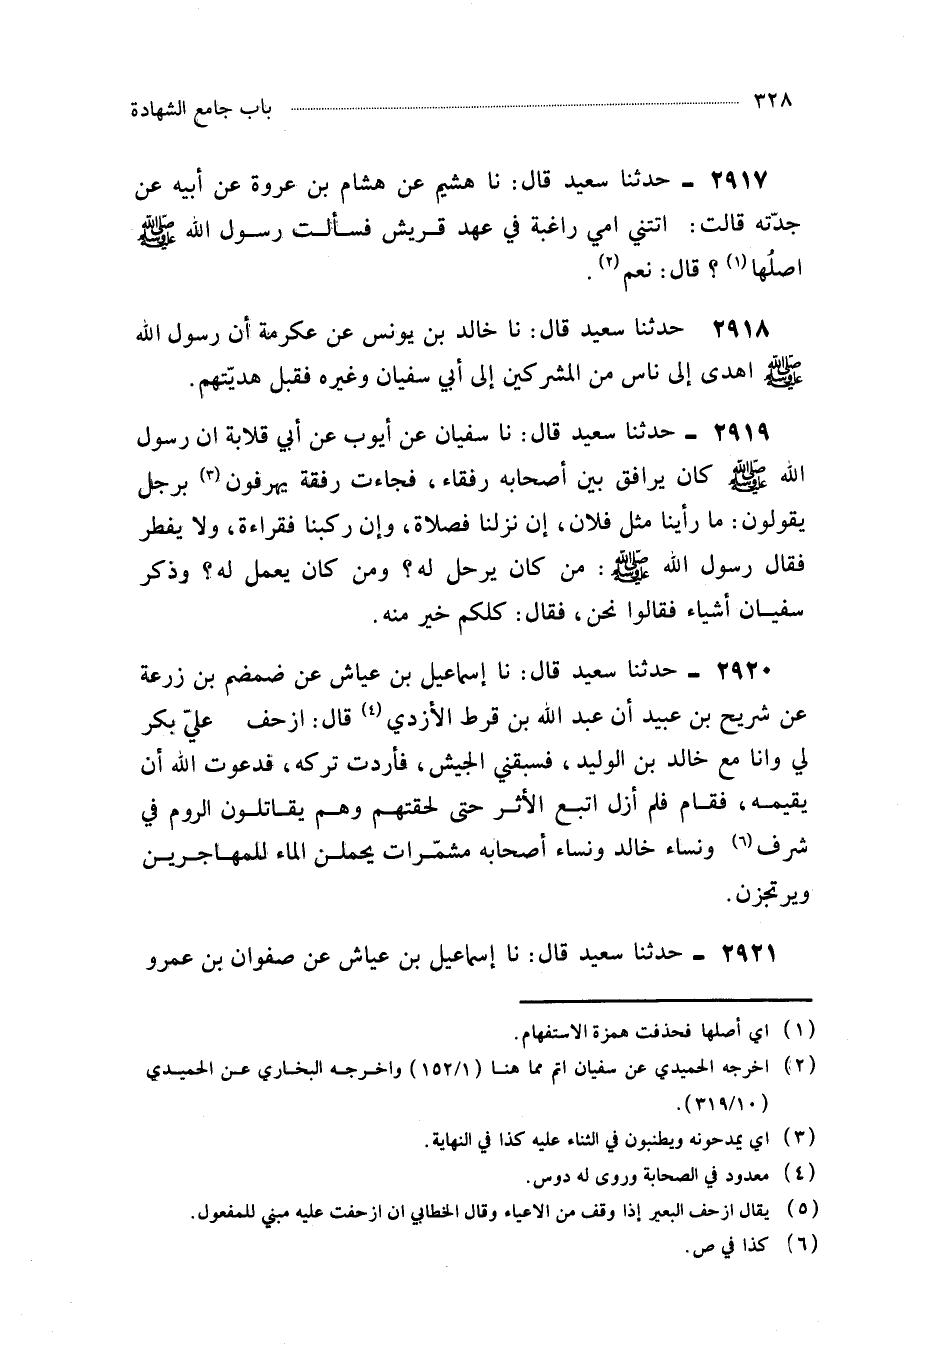 ٣٢٨ باب جامع الشهادة
٢٩١٧ ــ حدثنا سعيد قال: نا هشيم عن هشام بن عروة عن أبيه عن
جدّته قالت: اتتني امي راغبة في عهد قريش فسألت رسول الله ﷺ
اصلُها(١) ؟ قال: نعم(٢) .
٢٩١٨ حدثنا سعيد قال: نا خالد بن يونس عن عكرمة أن رسول الله
ﷺ اهدى إلى ناس من المشركين إلى أبي سفيان وغيره فقبل هديّتهم.
٢٩١٩ ــ حدثنا سعيد قال: نا سفيان عن أيوب عن أبي قلابة ان رسول
الله ﷺ كان يرافق بين أصحابه رفقاء، فجاءت رفقة يهرفون(٣) برجل
يقولون: ما رأينا مثل فلان، إن نزلنا فصلاة، وإن ركبنا فقراءة، ولا يفطر
فقال رسول الله ﷺ: من كان يرحل له؟ ومن كان يعمل له؟ وذكر
سفيان أشياء فقالوا نحن، فقال: كلكم خير منه.
٢٩٢٠ ــ حدثنا سعيد قال: نا إسماعيل بن عياش عن ضمضم بن زرعة
عن شريح بن عبيد أن عبد الله بن قرط الأزدي(٤) قال: ازحف عليّ بكر
لي وانا مع خالد بن الوليد، فسبقني الجيش، فأردت تركه، فدعوت الله أن
يقيمه، فقام فلم أزل اتبع الأثر حتى لحقتهم وهم يقاتلون الروم في
شرف(٦) ونساء خالد ونساء أصحابه مشمّرات يحملن الماء للمهاجرين
ويرتجزن.
٢٩٢١ ــ حدثنا سعيد قال: نا إسماعيل بن عياش عن صفوان بن عمرو
(١) اي أصلها فحذفت همزة الاستفهام.
(٢) اخرجه الحميدي عن سفيان اتم مما هنا (١٥٢/١) واخرجه البخاري عن الحميدي
(٣١٩/١٠).
(٣) اي يمدحونه ويطنبون في الثناء عليه كذا في النهاية.
(٤) معدود في الصحابة وروى له دوس.
(٥) يقال ازحف البعير إذا وقف من الاعياء وقال الخطابي ان ازحفت عليه مبني للمفعول.
(٦) كذا في ص.